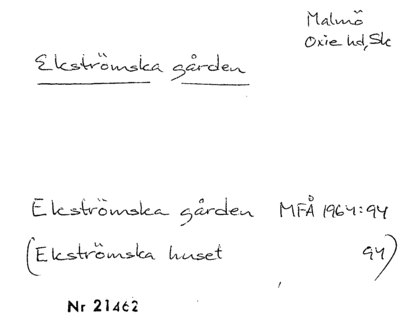 Malmö
Oxie hd, Sk
Ekströmska gården
Ekströmska gården MFÅ 1964:94
(Ekströmska huset 94)
Nr 21462